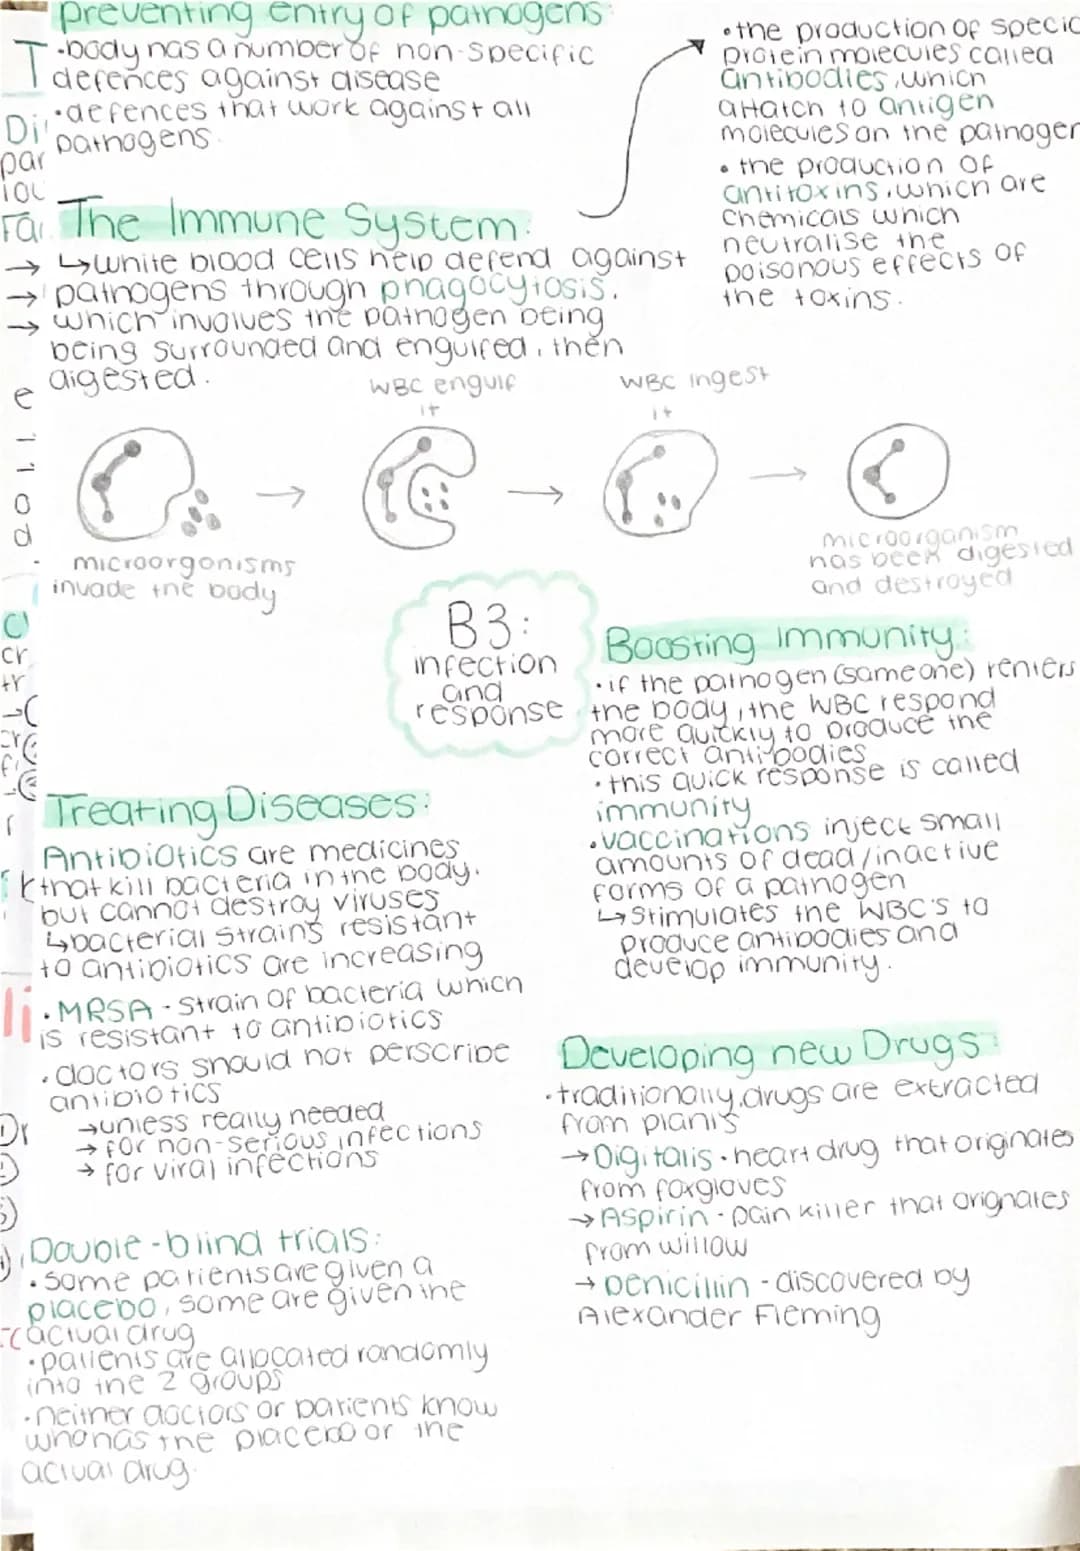 preventing entry of pathogens:
•body has a number of non-specific
defences against disease
•defences that work against all
pathogens.
The Immune System:
↳white blood cells help defend against
pathogens through phagocytosis.
which involves the pathogen being
being surrounded and engulfed, then
digested.
•the production of specic
protein molecules called
antibodies, which
attatch to antigen
molecules on the pathogen
•the production of
antitoxins, which are
chemicals which
neutralise the
poisonous effects of
the toxins.
WBC engulf
it
WBC ingest
it
microorgonisms
invade the body
microorganism
has been digested
and destroyed
B3:
infection
and
response
Boosting immunity:
•if the pathogen (same one) renters
the body, the WBC respond
more quickly to produce the
correct antibodies
•this quick response is called
immunity
•vaccinations inject small
amounts of dead/inactive
forms of a pathogen
↳stimulates the WBC's to
produce antibodies and
develop immunity.
Treating Diseases:
Antibiotics are medicines
that kill bacteria in the body.
but cannot destroy viruses
↳bacterial strains resistant
to antibiotics are increasing
•MRSA - strain of bacteria which
is resistant to antibiotics
•doctors should not perscribe
antibiotics
→unless really needed
→for non-serious infections
→for viral infections
Double-blind trials:
•some patients are given a
placebo, some are given the
actual drug
•patients are allocated randomly
into the 2 groups
•neither doctors or patients know
who has the placebo or the
actual drug.
Developing new Drugs:
•traditionally, drugs are extracted
from plants
→Digitalis • heart drug that originates
from foxgloves
→Aspirin - pain killer that orignates
from willow
→penicillin - discovered by
Alexander Fleming